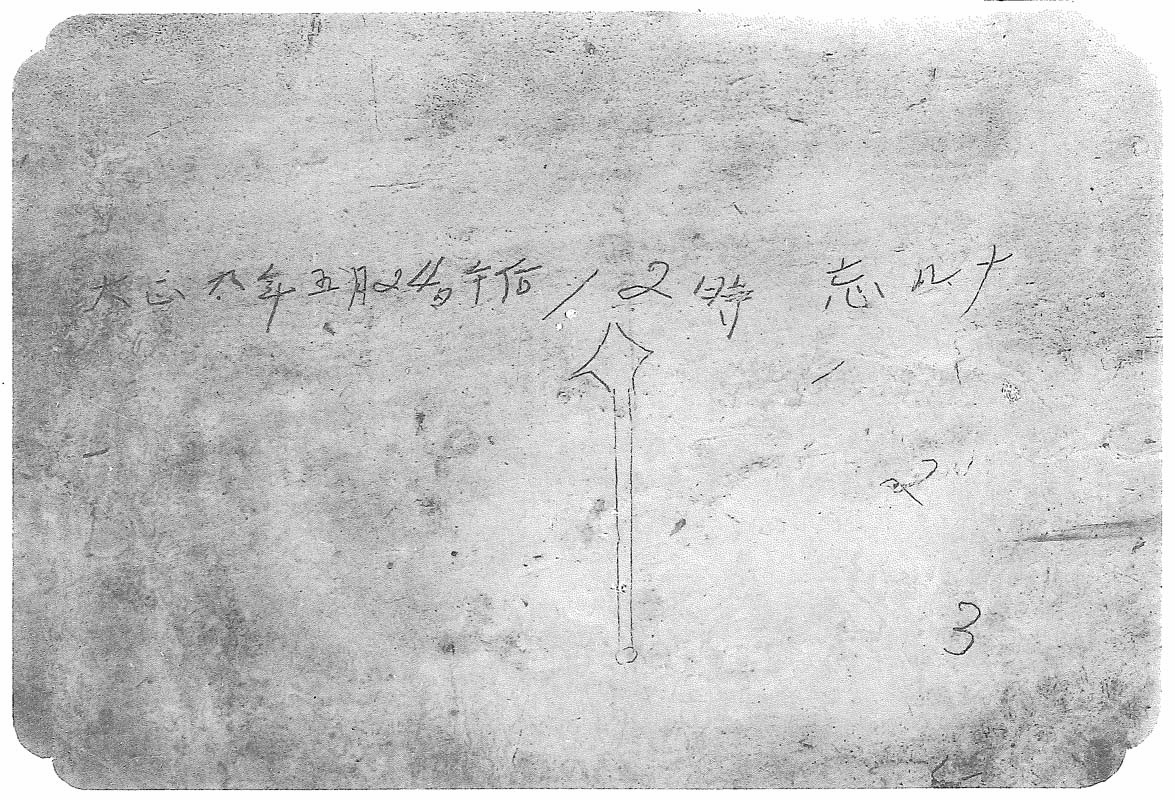 大正九年五月24日午后12時 忘レナ
2
3